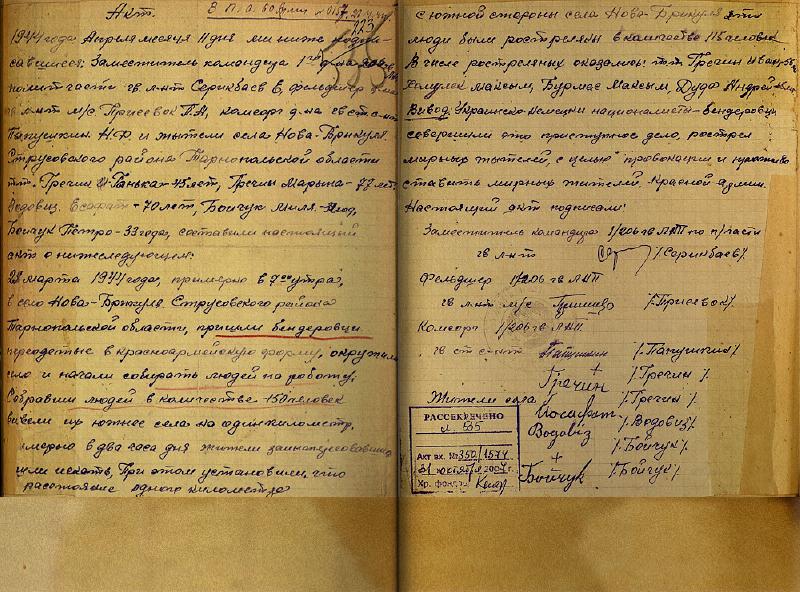 Акт.
В П.О. 60 Армии
223
1944 года Апреля месяца 11 дня мы ниже подпи-
савшиеся: Заместитель командира 1го
полит части гв л-нт Серикбаев Е, фельдшер
гв л-нт м/с Присевок П.Н, комсорг д-на гв ст с-нт
Папушкин Н.Ф и жители села Нова-Брикуля
Струсовского района Тарнопольской области
тт. Гречин Панька - 45 лет, Гречин Марына - 77 лет
Водовиз Есафат - 70 лет, Бойчук Миля -
Бойчук Петро - 33 года, составили настоящий
акт о нижеследующем:
28 марта 1944 года, примерно в 7 00 утра,
в село Нова-Брикуля Струсовского района
Тарнопольской области, пришли бендеровци
переодетые в красноармейскую форму, окружили
село и начали собирать людей на работу,
Собравши людей в количестве 150 человек
вывели их южнее села на один километр,
имерно в два часа дня жители заинтересовавшись
шли искать, При этом установили, что
расстояние одного километра
с южной стороны села Нова-Брикуля эти
люди были ростреляны в количестве 115 человек
В числе ростреляных оказались: тт Гречин Иван
Максым, Бурмас Максым, Дудо Андрей
Вывод: Украинско-немецки националисти-Бендеровци
совершили это преступное дело, рострел
мирных жителей, с целью провокации и
ставить мирных жителей, Красной армии.
Настоящий акт подписали:
Заместитель командира 1/206 гв ЛАП по п/части
гв л-нт /Серикбаев/
Фельдшер 1/206 гв ЛАП
гв л-нт м/с /Присевок/
Комсорг 1/206 гв ЛАП
гв ст с-нт /Папушкин/
+
Гречин /Гречин/
Жители села /Гречин/
Йосафат
Водовіз /Водовиз/
+ /Бойчук/
Бойчук /Бойчук/
РАССЕКРЕЧЕНО
л. 535
Акт вх. № 350/1574
2007 г.
Хр. фонда